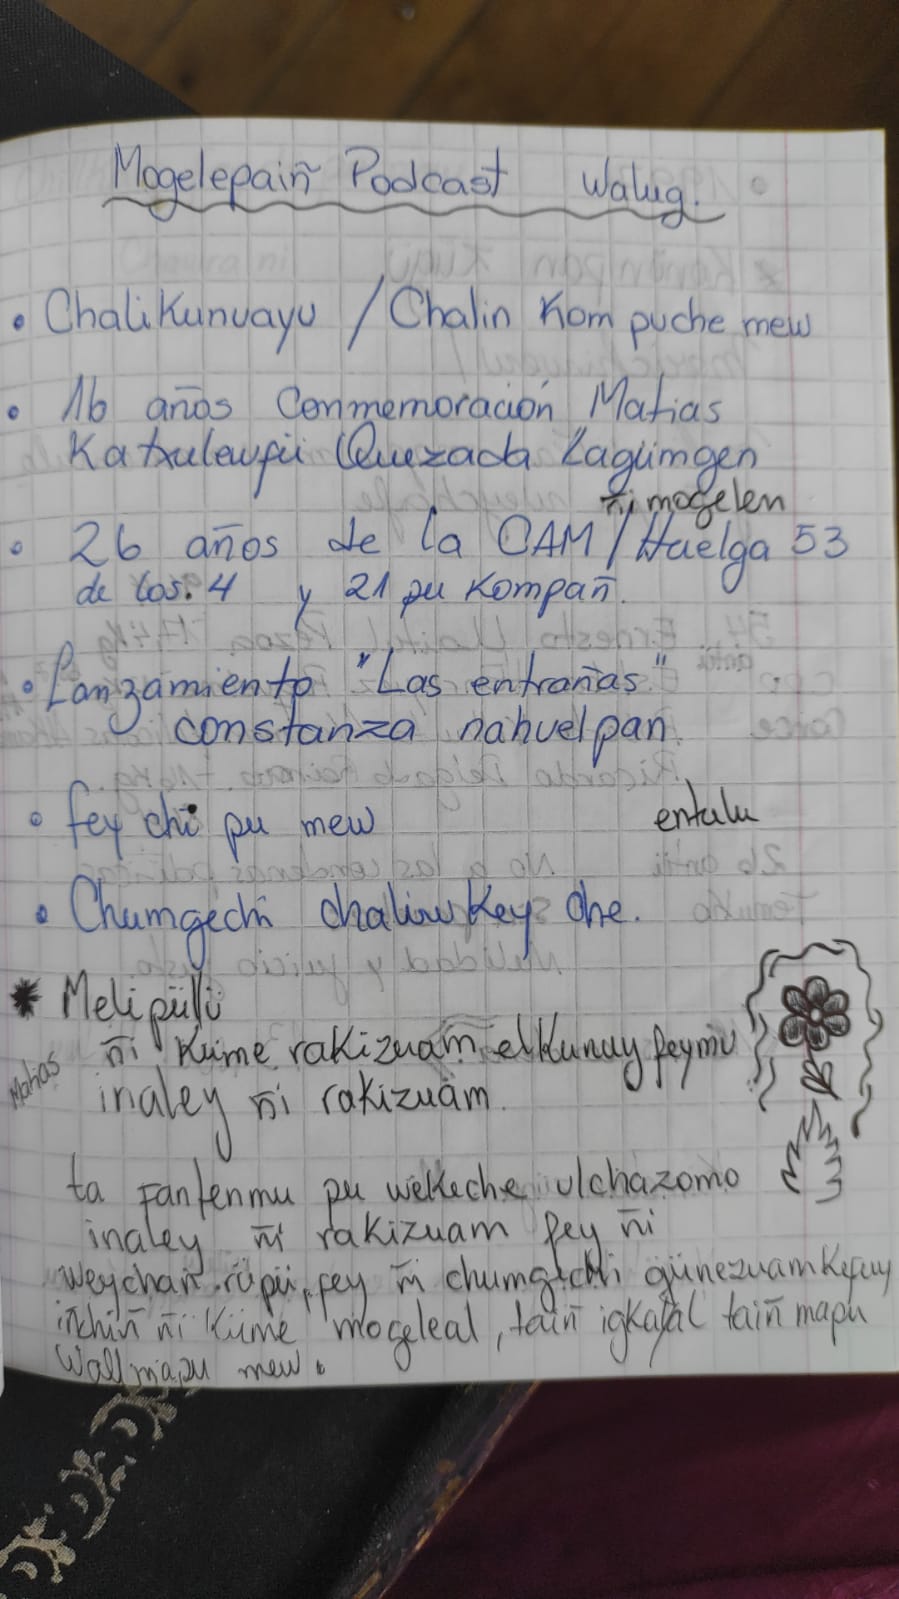 Mogelepaiñ Podcast Walug.
• Chalikunuayu / Chalin Kom puche mew
• 16 años Conmemoración Matias
Katxulewfü Quezada Lagümgen
ñi mogelen
• 26 años de la CAM / Huelga 53
de los: 4 y 21 pu Kompañ.
• Lanzamiento "Las entrañas"
constanza nahuelpan.
• fey chi pu mew entulu
• Chumgechi chaliwkey che.
* Meli püllü
ñi Küme rakizuam elkunuy feymu
Matias
inaley ñi rakizuam.
ta fantenmu pu wekeche ulchazomo
inaley ñi rakizuam fey ñi
weychan rüpü, fey ñi chumgechi günezuamkefuy
inchiñ ñi Küme mogeleal, taiñ igkafal taiñ mapu
Wallmapu mew.